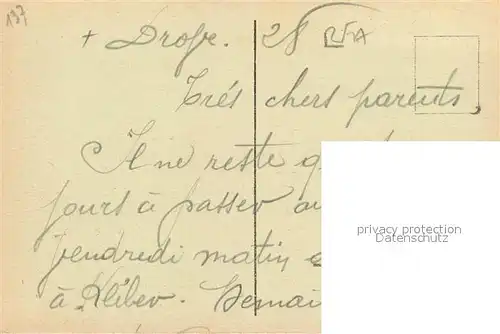 137
+ Drofe. 28
Très chers parents,
Il ne reste
jours à passer au
vendredi matin
à Kléber. Demai
privacy protection
Datenschutz